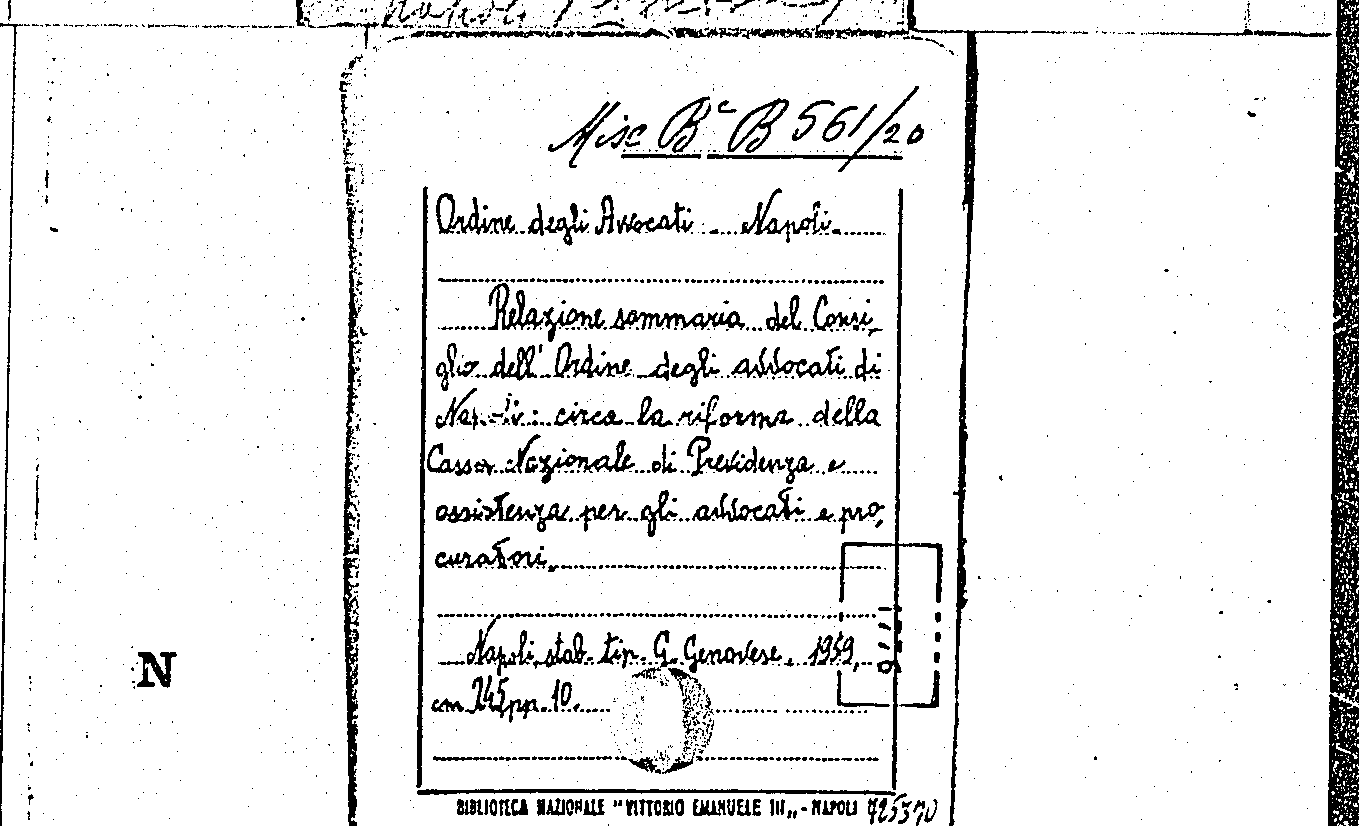 Napoli
Misc Bᶜ B 561/20
Ordine degli Avvocati - Napoli.
Relazione sommaria del Consi-
glio dell'Ordine degli avvocati di
Napoli: circa la riforma della
Cassa Nazionale di Previdenza e
assistenza per gli avvocati e pro-
curatori.
Napoli, stab. tip. G. Genovese, 1959,
cm 24,5 pp. 10.
N
BIBLIOTECA NAZIONALE "VITTORIO EMANUELE III„ - NAPOLI 725370